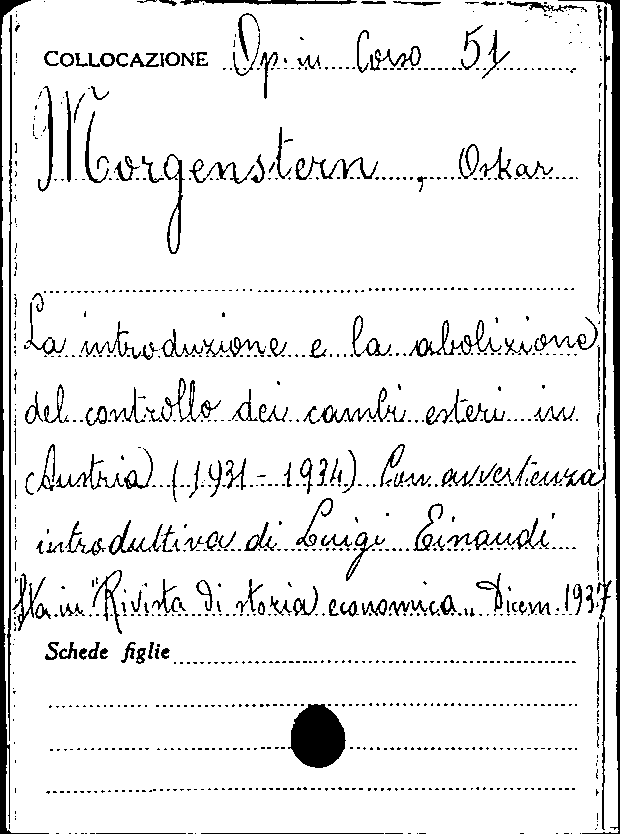 COLLOCAZIONE Op. in Corso 51
Morgenstern, Oskar
La introduzione e la abolizione
del controllo dei cambi esteri in
Austria (1931-1934) Con avvertenza
introduttiva di Luigi Einaudi
Sta in "Rivista di storia economica" Dicem. 1937
Schede figlie